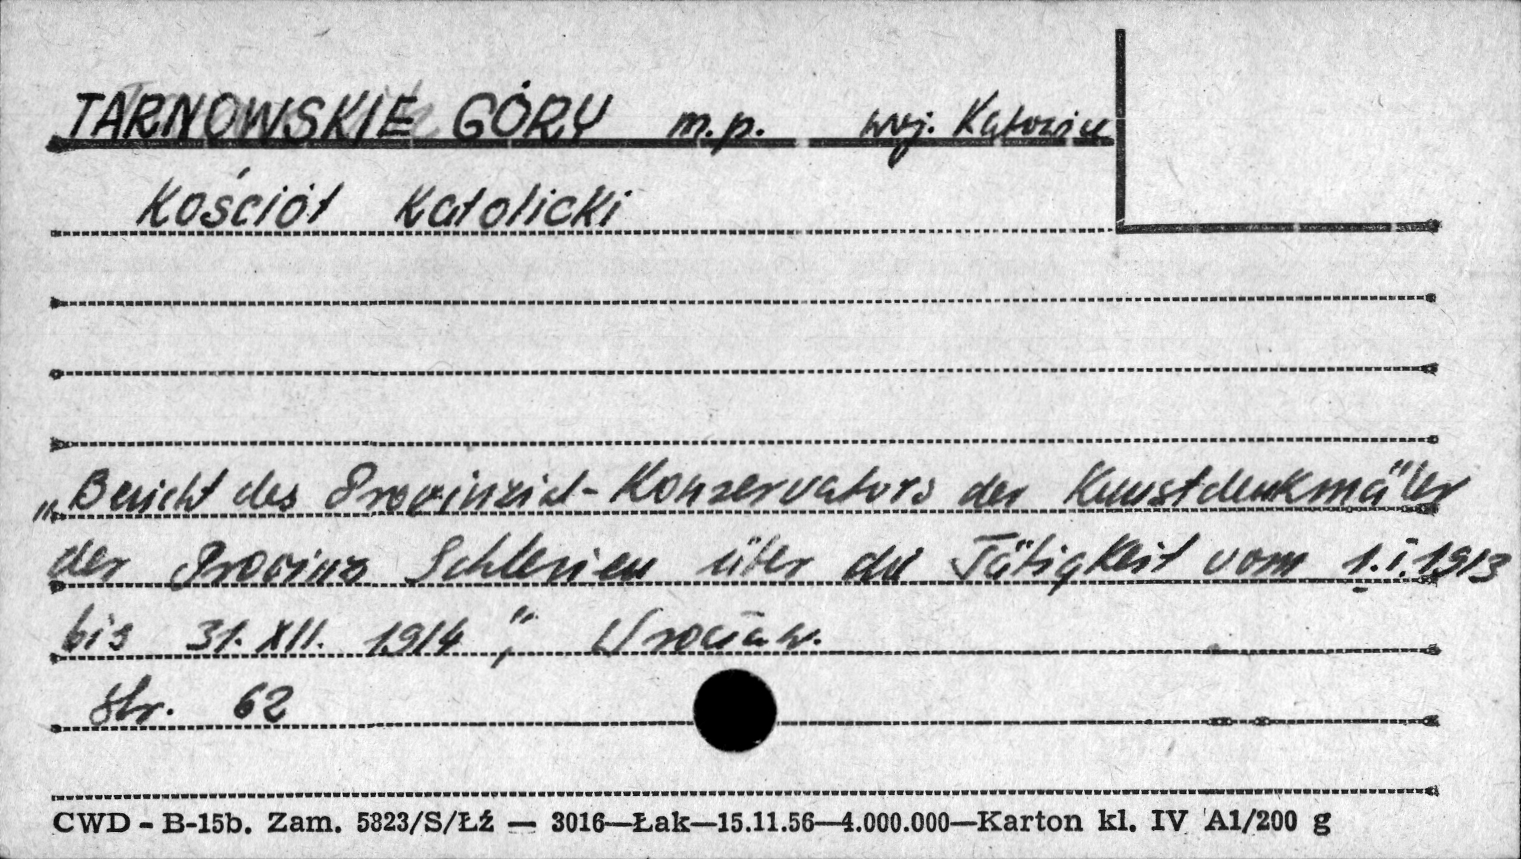 TARNOWSKIE GÓRY m.p. woj. Katowice
Kościół Katolicki
„Bericht des Provinzial-Konservators der Kunstdenkmäler
der Provinz Schlesien über die Tätigkeit vom 1.I.1913
bis 31.XII.1914", Wrocław.
Str. 62
CWD - B-15b. Zam. 5823/S/Łź — 3016—Łak—15.11.56—4.000.000—Karton kl. IV A1/200 g